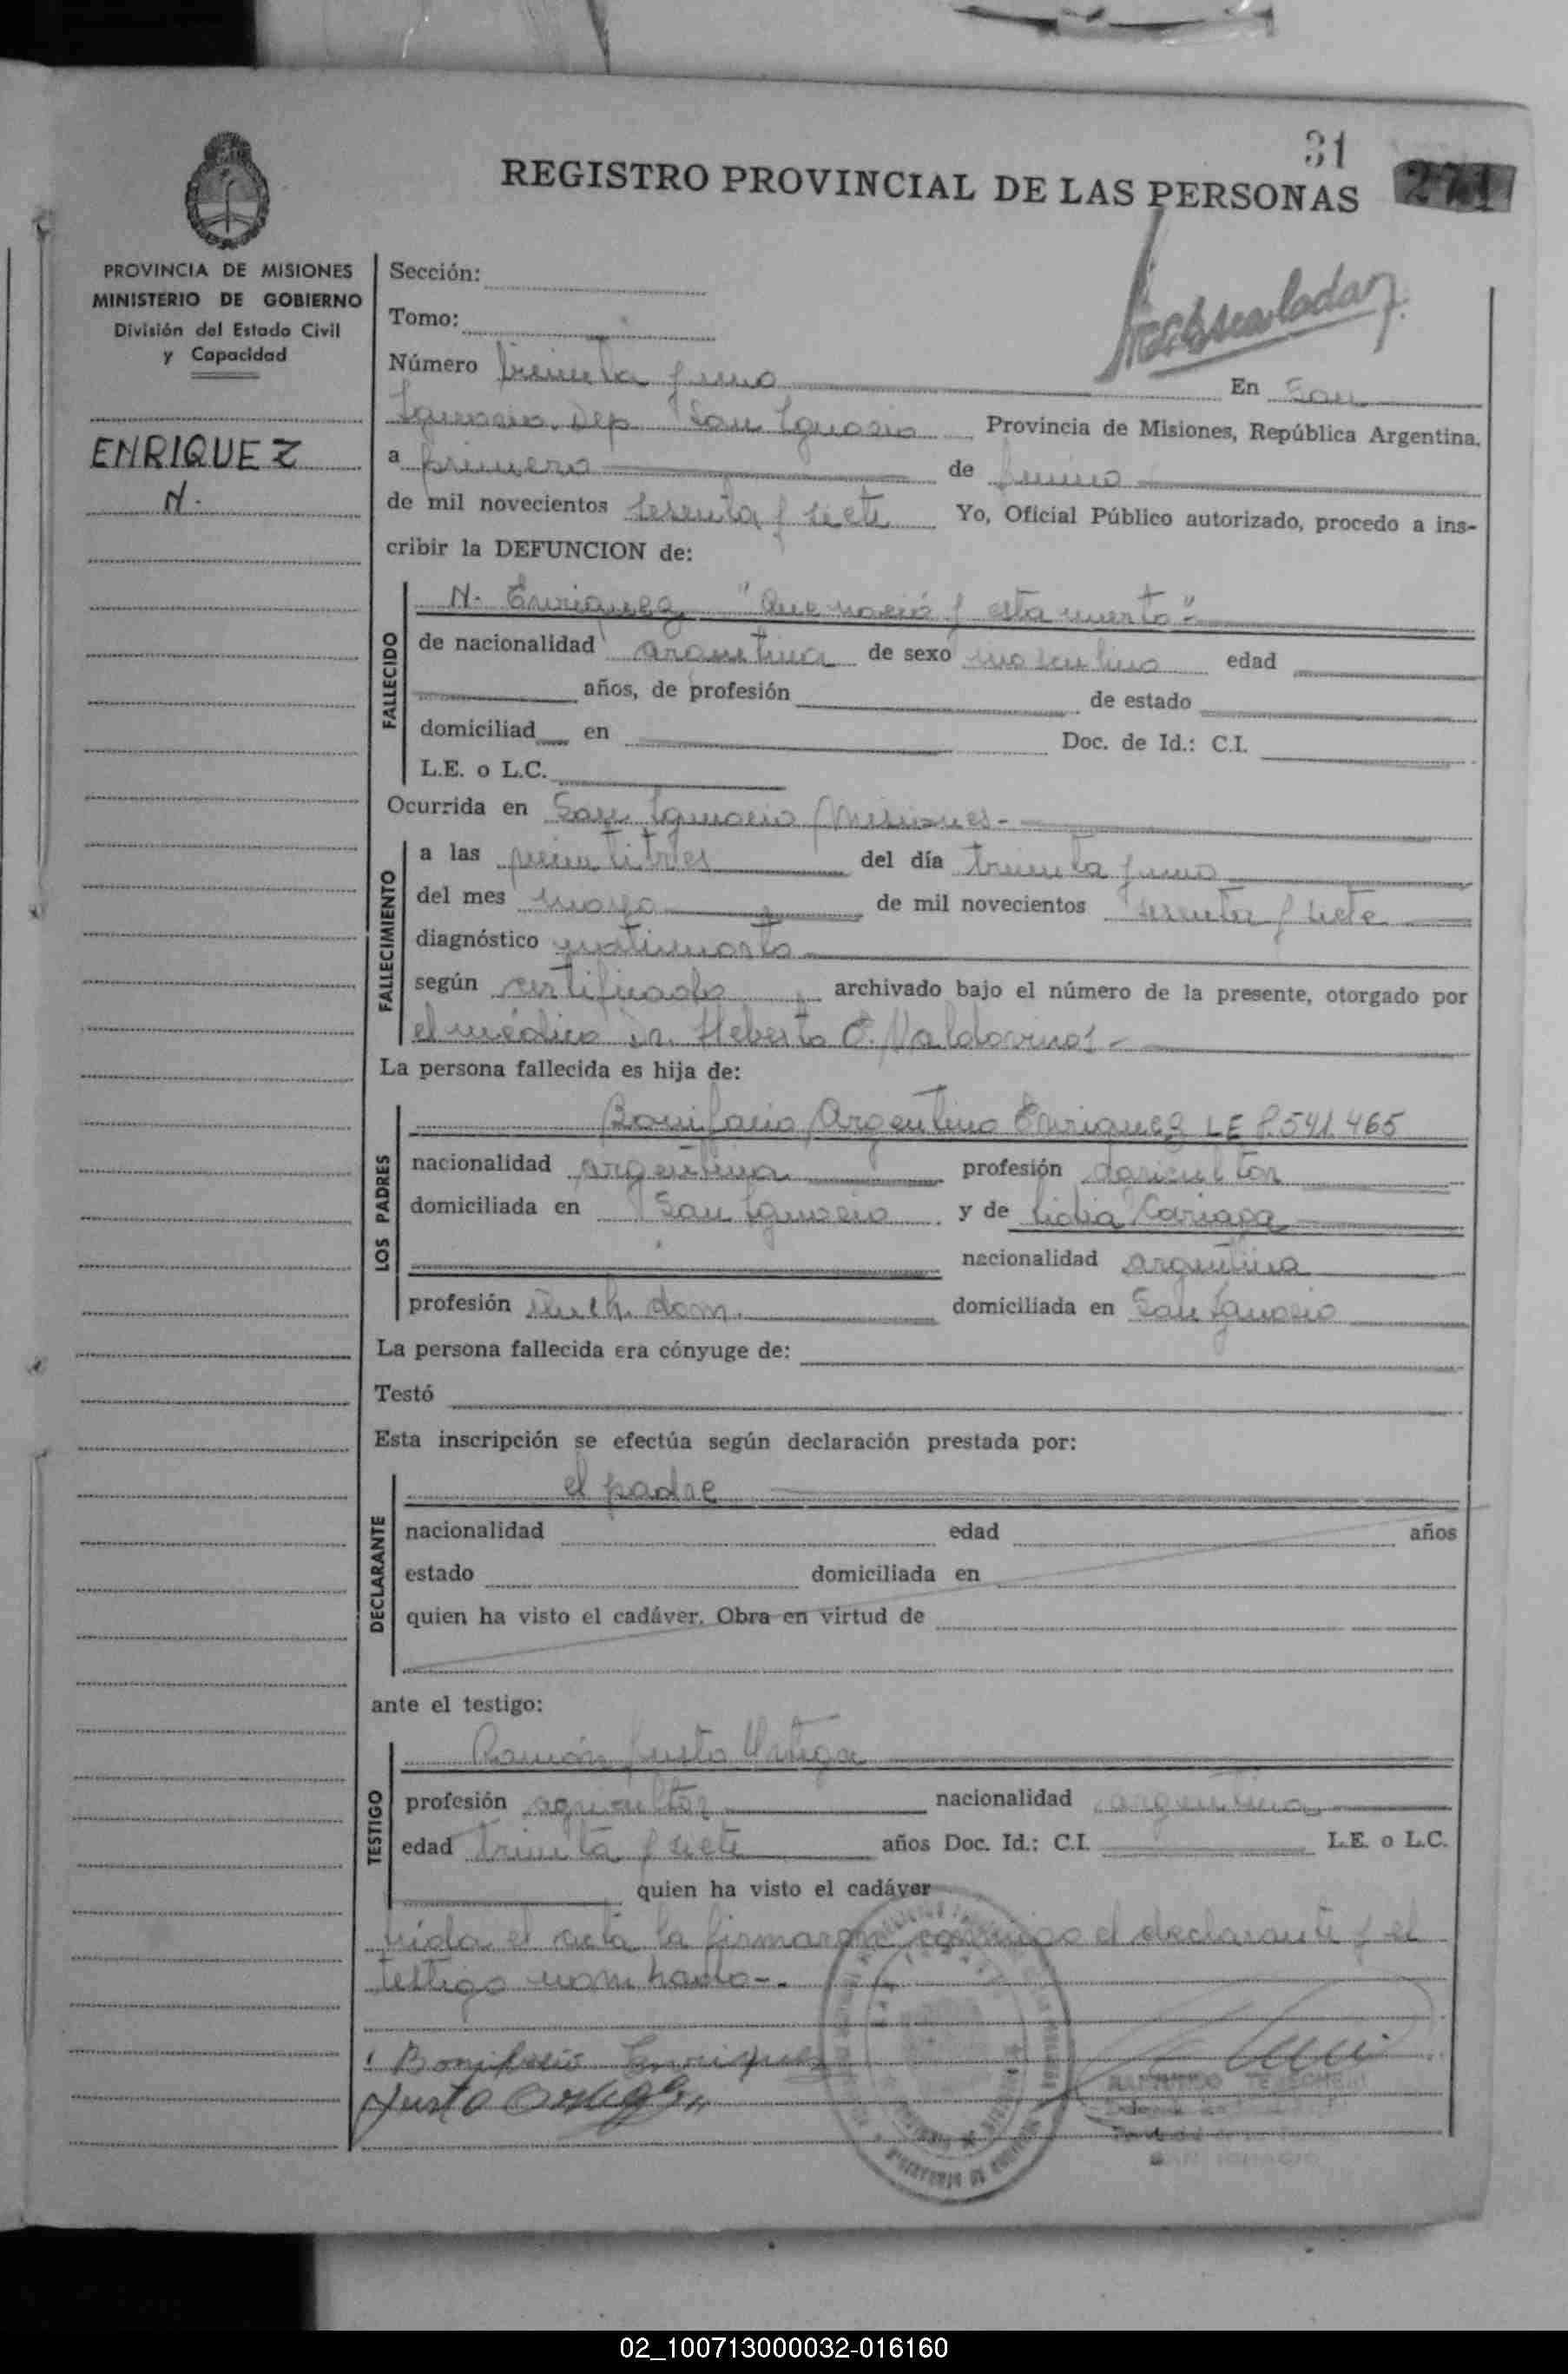 31
REGISTRO PROVINCIAL DE LAS PERSONAS 271
PROVINCIA DE MISIONES
MINISTERIO DE GOBIERNO
División del Estado Civil
y Capacidad
ENRIQUEZ
N.
Sección:
Tomo:
Número treinta y uno En San
Ignacio, Dep. San Ignacio Provincia de Misiones, República Argentina.
a primero de junio
de mil novecientos sesenta y siete Yo, Oficial Público autorizado, procedo a ins-
cribir la DEFUNCION de:
FALLECIDO
N. Enriquez "Que nació y esta muerto"-
de nacionalidad argentina de sexo masculino edad
años, de profesión de estado
domiciliad en Doc. de Id.: C.I.
L.E. o L.C.
Ocurrida en San Ignacio Misiones-
FALLECIMIENTO
a las veintitres del día treinta y uno
del mes mayo de mil novecientos sesenta y siete
diagnóstico natimorto
según certificado archivado bajo el número de la presente, otorgado por
el médico Dr. Heberto C. Valdovinos-
La persona fallecida es hija de:
LOS PADRES
Bonifacio Argentino Enriquez LE 7.541.465
nacionalidad argentina profesión agricultor
domiciliada en San Ignacio y de Lidia
nacionalidad argentina
profesión dom. domiciliada en San Ignacio
La persona fallecida era cónyuge de:
Testó
Esta inscripción se efectúa según declaración prestada por:
DECLARANTE
el padre
nacionalidad edad años
estado domiciliada en
quien ha visto el cadáver. Obra en virtud de
ante el testigo:
TESTIGO
Ramón Justo Ortega
profesión agricultor nacionalidad argentina
edad treinta y siete años Doc. Id.: C.I. L.E. o L.C.
quien ha visto el cadáver
Leída el acta la firmaron conmigo el declarante y el
testigo nombrado-.
Bonifacio Enriquez
Justo Ortega
SAN IGNACIO
02_100713000032-016160